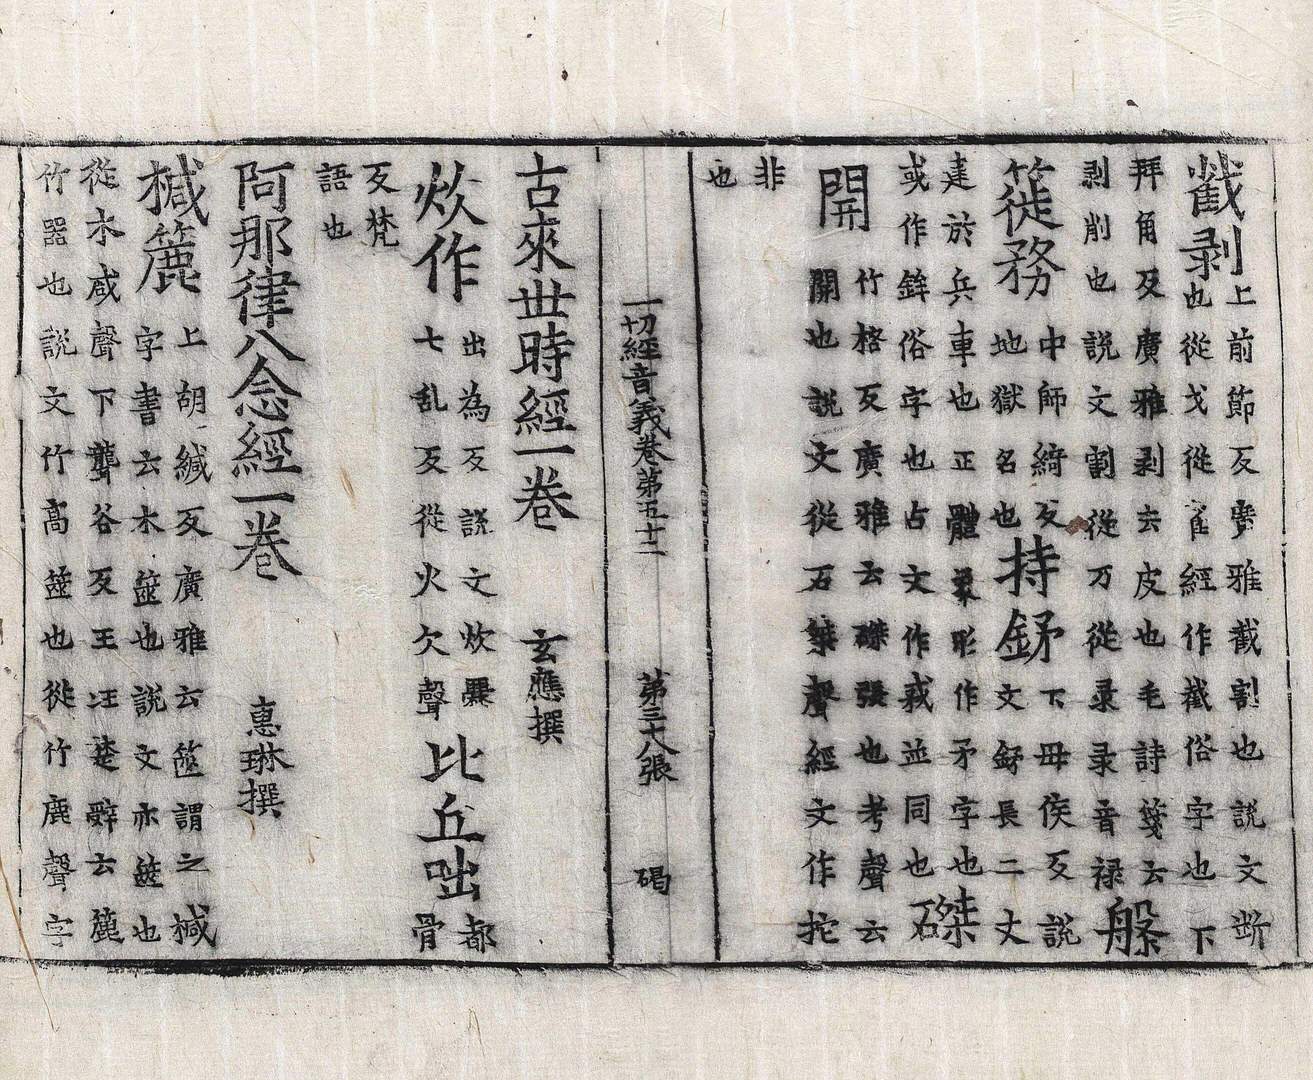 䚯剥上前節反廣雅截割也說文斷
也從戈從雀經作截俗字也下
拜角反廣雅剥去皮也毛詩箋云
剥削也說文割從刀從录录音禄槃
簁務中師綺反地獄名也持鉌下毋侯反說文鉌長二丈
建於兵車也正體象形作矛字也
或作鉾俗字也占文作𢦧並同也磔
開竹格反廣雅云磔張也考聲云
開也說文從石桀聲經文作挓
非
也
一切經音義卷第五十二 第三十八張 碣
古來世時經一卷 玄應撰
炊作出為反說文炊爨七亂反從火欠聲比丘咄都骨
反梵
語也
阿那律八念經一卷 惠琳撰
椷簏上胡緘反廣雅云篋謂之椷
字書云木篋也說文亦篋也
從木咸聲下聾谷反王注楚辭云簏
竹器也說文竹高篋也從竹鹿聲字